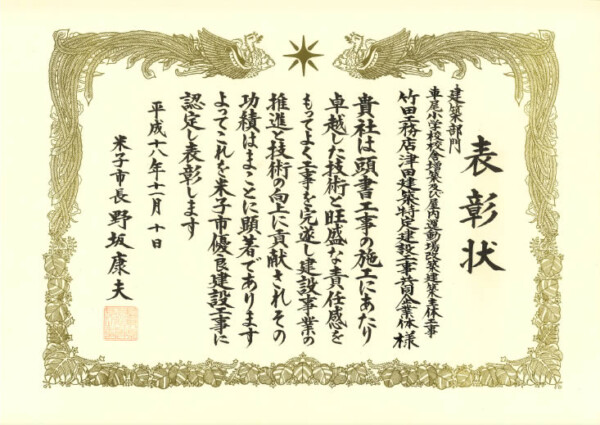 表彰状
建築部門
車尾小学校校舎増築及び屋内運動場改築建築主体工事
竹田工務店津田建築特定建設工事共同企業体 様
貴社は頭書工事の施工にあたり
卓越した技術と旺盛な責任感を
もってよく工事を完遂し建設事業の
推進と技術の向上に貢献されその
功績はまことに顕著であります
よってこれを米子市優良建設工事に
認定し表彰します
平成十八年十一月十日
米子市長 野坂康夫